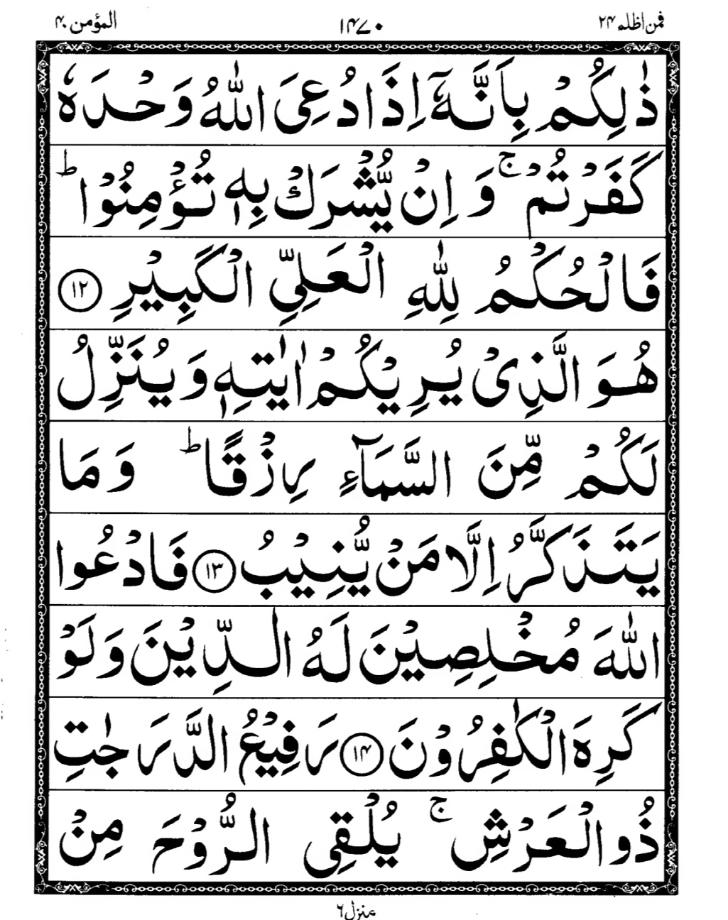 فمن اظلم ۲۴ ۱۴۷۰ المؤمن ۴۰
ذٰلِكُمْ بِاَنَّهٗۤ اِذَا دُعِیَ اللّٰهُ وَحْدَهٗ
كَفَرْتُمْ ۚ وَ اِنْ یُّشْرَكْ بِهٖ تُؤْمِنُوْا ؕ
فَالْحُكْمُ لِلّٰهِ الْعَلِیِّ الْكَبِیْرِ ۝۱۲
هُوَ الَّذِیْ یُرِیْكُمْ اٰیٰتِهٖ وَ یُنَزِّلُ
لَكُمْ مِّنَ السَّمَآءِ رِزْقًا ؕ وَ مَا
یَتَذَكَّرُ اِلَّا مَنْ یُّنِیْبُ ۝۱۳ فَادْعُوا
اللّٰهَ مُخْلِصِیْنَ لَهُ الدِّیْنَ وَ لَوْ
كَرِهَ الْكٰفِرُوْنَ ۝۱۴ رَفِیْعُ الدَّرَجٰتِ
ذُو الْعَرْشِ ۚ یُلْقِی الرُّوْحَ مِنْ
منزل ۶